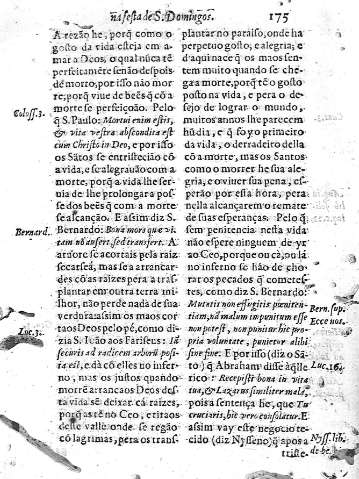 na festa de S. Domingos. 175
A rezão he, porq̃ como o
gosto da vida esteja em a-
mar a Deos, o qual nũca tẽ
perfeitamẽte senão despois
de morto, por isso não mor
re, porq̃ viue de beẽs q̃ cõ a
morte se perfeiçoão. Pelo
q̃ S. Paulo: Mortui enim estis,
& vita vestra abscondita est
cum Christo in Deo, e por isso
os Sãtos se entristecião cõ
a vida, e se alegrauão com a
morte, porq̃ a vida lhe ser-
uia de lhe prolongar a pos-
se dos beẽs q̃ com a morte
se alcanção. E assim diz S.
Bernardo: Bona mors que vi-
tam nõ aufert, sed transfert. A
aruore se acortais pela raiz
secarseá, mas se a arrencar-
des cõ as raizes pera a tras-
plantar em outra terra mi-
lhor, não perde nada de sua
verdura assim os maos cor-
taos Deos pelo pé, como di-
zia S. Ioão aos Fariseus: Iã
securis ad radicem arborũ posi-
ta est, e dá cõ elles no infer-
no, mas os justos quando
morrẽ arrancaos Deos des-
ta vida sẽ deixar cá raizes,
porq̃ as tẽ no Ceo, e tiraos
deste valle onde se regão
cõ lagrimas, pera os trans-
Coloss. 3.
Bernard.
Luc. 3.
plantar no paraiso, onde ha
perpetuo gosto, e alegria; e
d'aqui nace q̃ os maos sen-
tem muito quando se che-
ga a morte, porq̃ tẽ o gosto
posto na vida, e pera o de-
sejo de lograr o mundo,
muitos annos lhe parecem
hũ dia, e q̃ so y o primeiro
da vida, o derradeiro della
cõ a morte, mas os Santos
como o morrer he sua ale-
gria, e o viuer sua pena, es-
perão por esta hora, pera
nella alcançarem o remate
de suas esperanças. Pelo q̃
sem penitencia nesta vida
não espere ninguem de yr
ao Ceo, porque ou cà, ou lá
no inferno se hão de cho-
rar os pecados q̃ cometes-
te, como diz S. Bernardo:
Mutatis non effugitis peniten-
tiam, nã malum impunitum esse
non potest, non punitur hic pro-
pria voluntate, punietur alibi
sine fine. E por isso (diz o Sã-
to) q̃ Abraham disse àq̃lle
rico: Recepisti bona in vita
tua, & Lazarus similiter mala,
pois a sentença he, que Tu
cruciaris, hic vero consolatur. E
assim vay este negocio te-
cido (diz Nysseno) q̃ apos a
triste-
Bern. sup.
Ecce nos.
Luc. 16.
Nyss. lib.
de be-